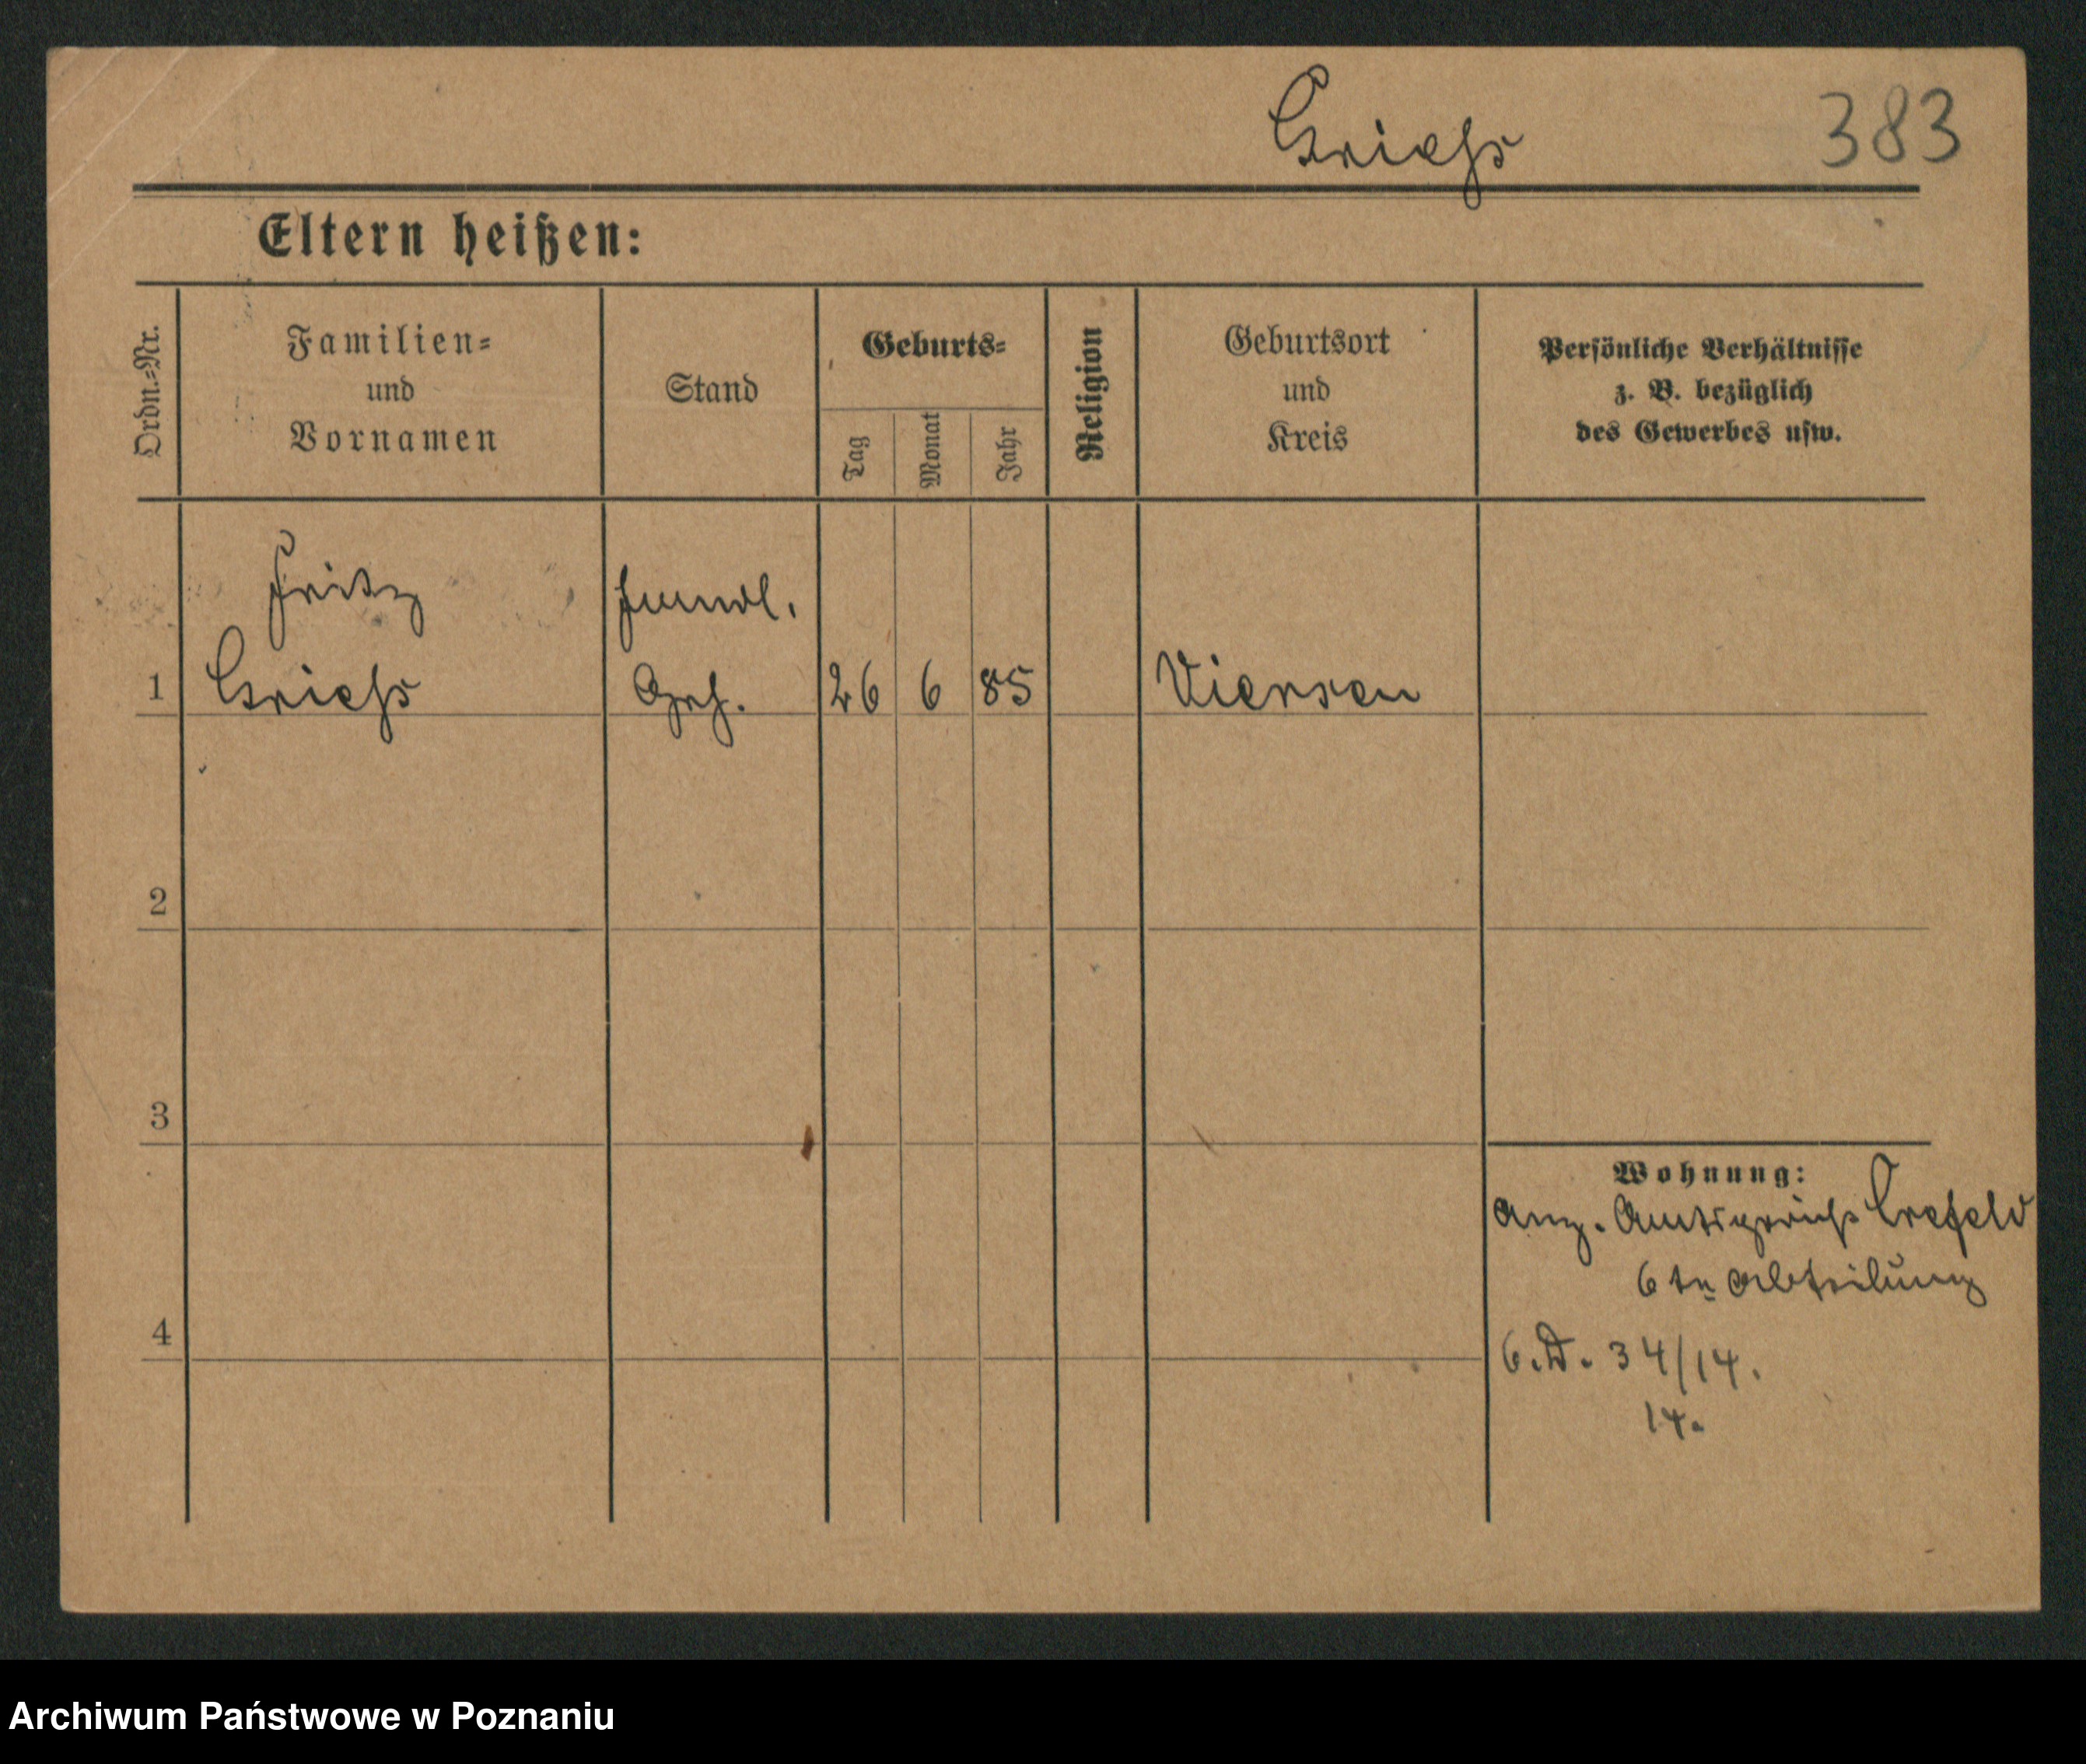 383
Eltern heißen:
Ordn.-Nr.
Familien-
und
Vornamen
Stand
Geburts-
Tag
Monat
Jahr
Religion
Geburtsort
und
Kreis
Persönliche Verhältnisse
z. B. bezüglich
des Gewerbes usw.
Fritz
Handl.
1 Geh. 26 6 85 Viersen
2
3
Wohnung:
Amtsgericht Crefeld
6 te Abteilung
4
6.D. 34/14.
14.
Archiwum Państwowe w Poznaniu